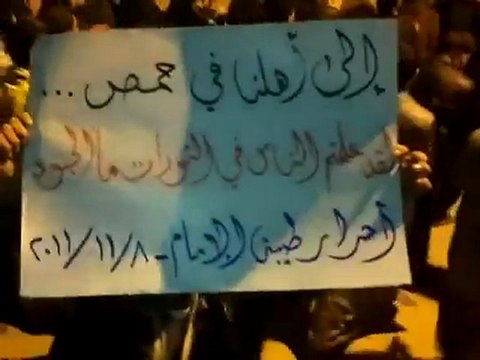 إلى أهلنا في حمص ...
لقد علمتم الناس في الثورات ما الجود
أحرار طيبة الإمام - ٢٠١١/١١/٨